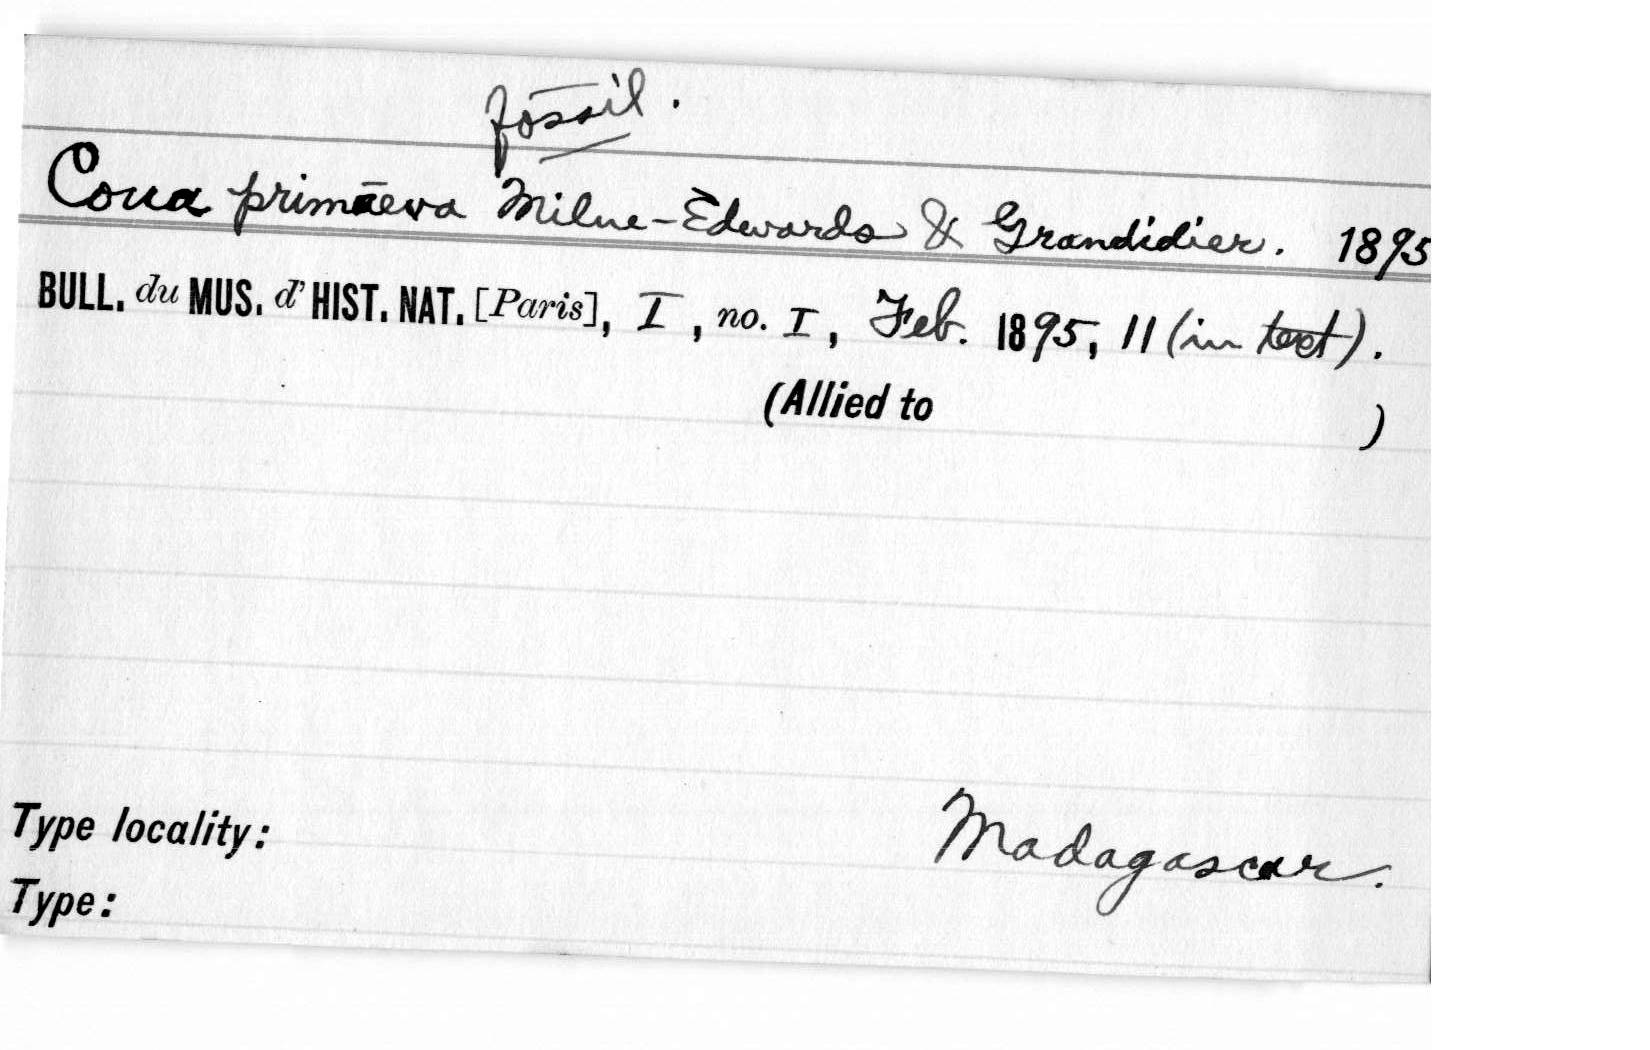 fossil.
Coua primaeva Milne-Edwards & Grandidier. 1895
BULL. du MUS. d' HIST. NAT. [Paris], I, no. I, Feb. 1895, 11 (in text).
(Allied to )
Type locality: Madagascar.
Type: